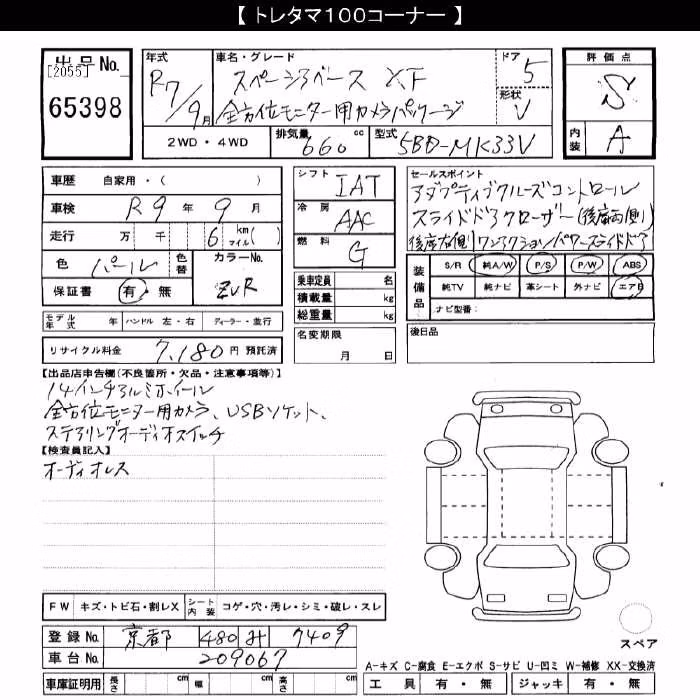 【 トレタマ100コーナー 】
出品No.
[2055]
65398
年式
R7/9月
車名・グレード
スペーシアベース XF
全方位モニター用カメラパッケージ
ドア
5
形状
V
評価点
S
内装
A
2WD・4WD
排気量 660 cc
型式 5BD-MK33V
車歴 自家用・( )
車検 R9 年 9 月
走行 万 千 6 km マイル( )
色 パール 色替
カラーNo. ZVR
保証書 有・無
モデル年式 年 ハンドル 左・右 ディーラー・並行
リサイクル料金 7,180 円 預託済
シフト IAT
冷房 AAC
燃料 G
乗車定員 名
積載量 kg
総重量 kg
名変期限
月 日
セールスポイント
アダプティブクルーズコントロール
スライドドアクローザー(後席両側)
後席右側ワンアクションパワースライドドア
装備品
S/R 純A/W P/S P/W ABS
純TV 純ナビ 革シート 外ナビ エアB
ナビ型番:
後日品
【出品店申告欄(不良箇所・欠品・注意事項等)】
14インチアルミホイール
全方位モニター用カメラ、USBソケット、
ステアリングオーディオスイッチ
【検査員記入】
オーディオレス
FW キズ・トビ石・割レX シート内装 コゲ・穴・汚レ・シミ・破レ・スレ
登録No. 京都 480 み 7409
車台No. 209067
車庫証明用 長さ cm 幅 cm 高さ cm
スペア
A-キズ C-腐食 E-エクボ S-サビ U-凹ミ W-補修 XX-交換済
工具 有・無 ジャッキ 有・無